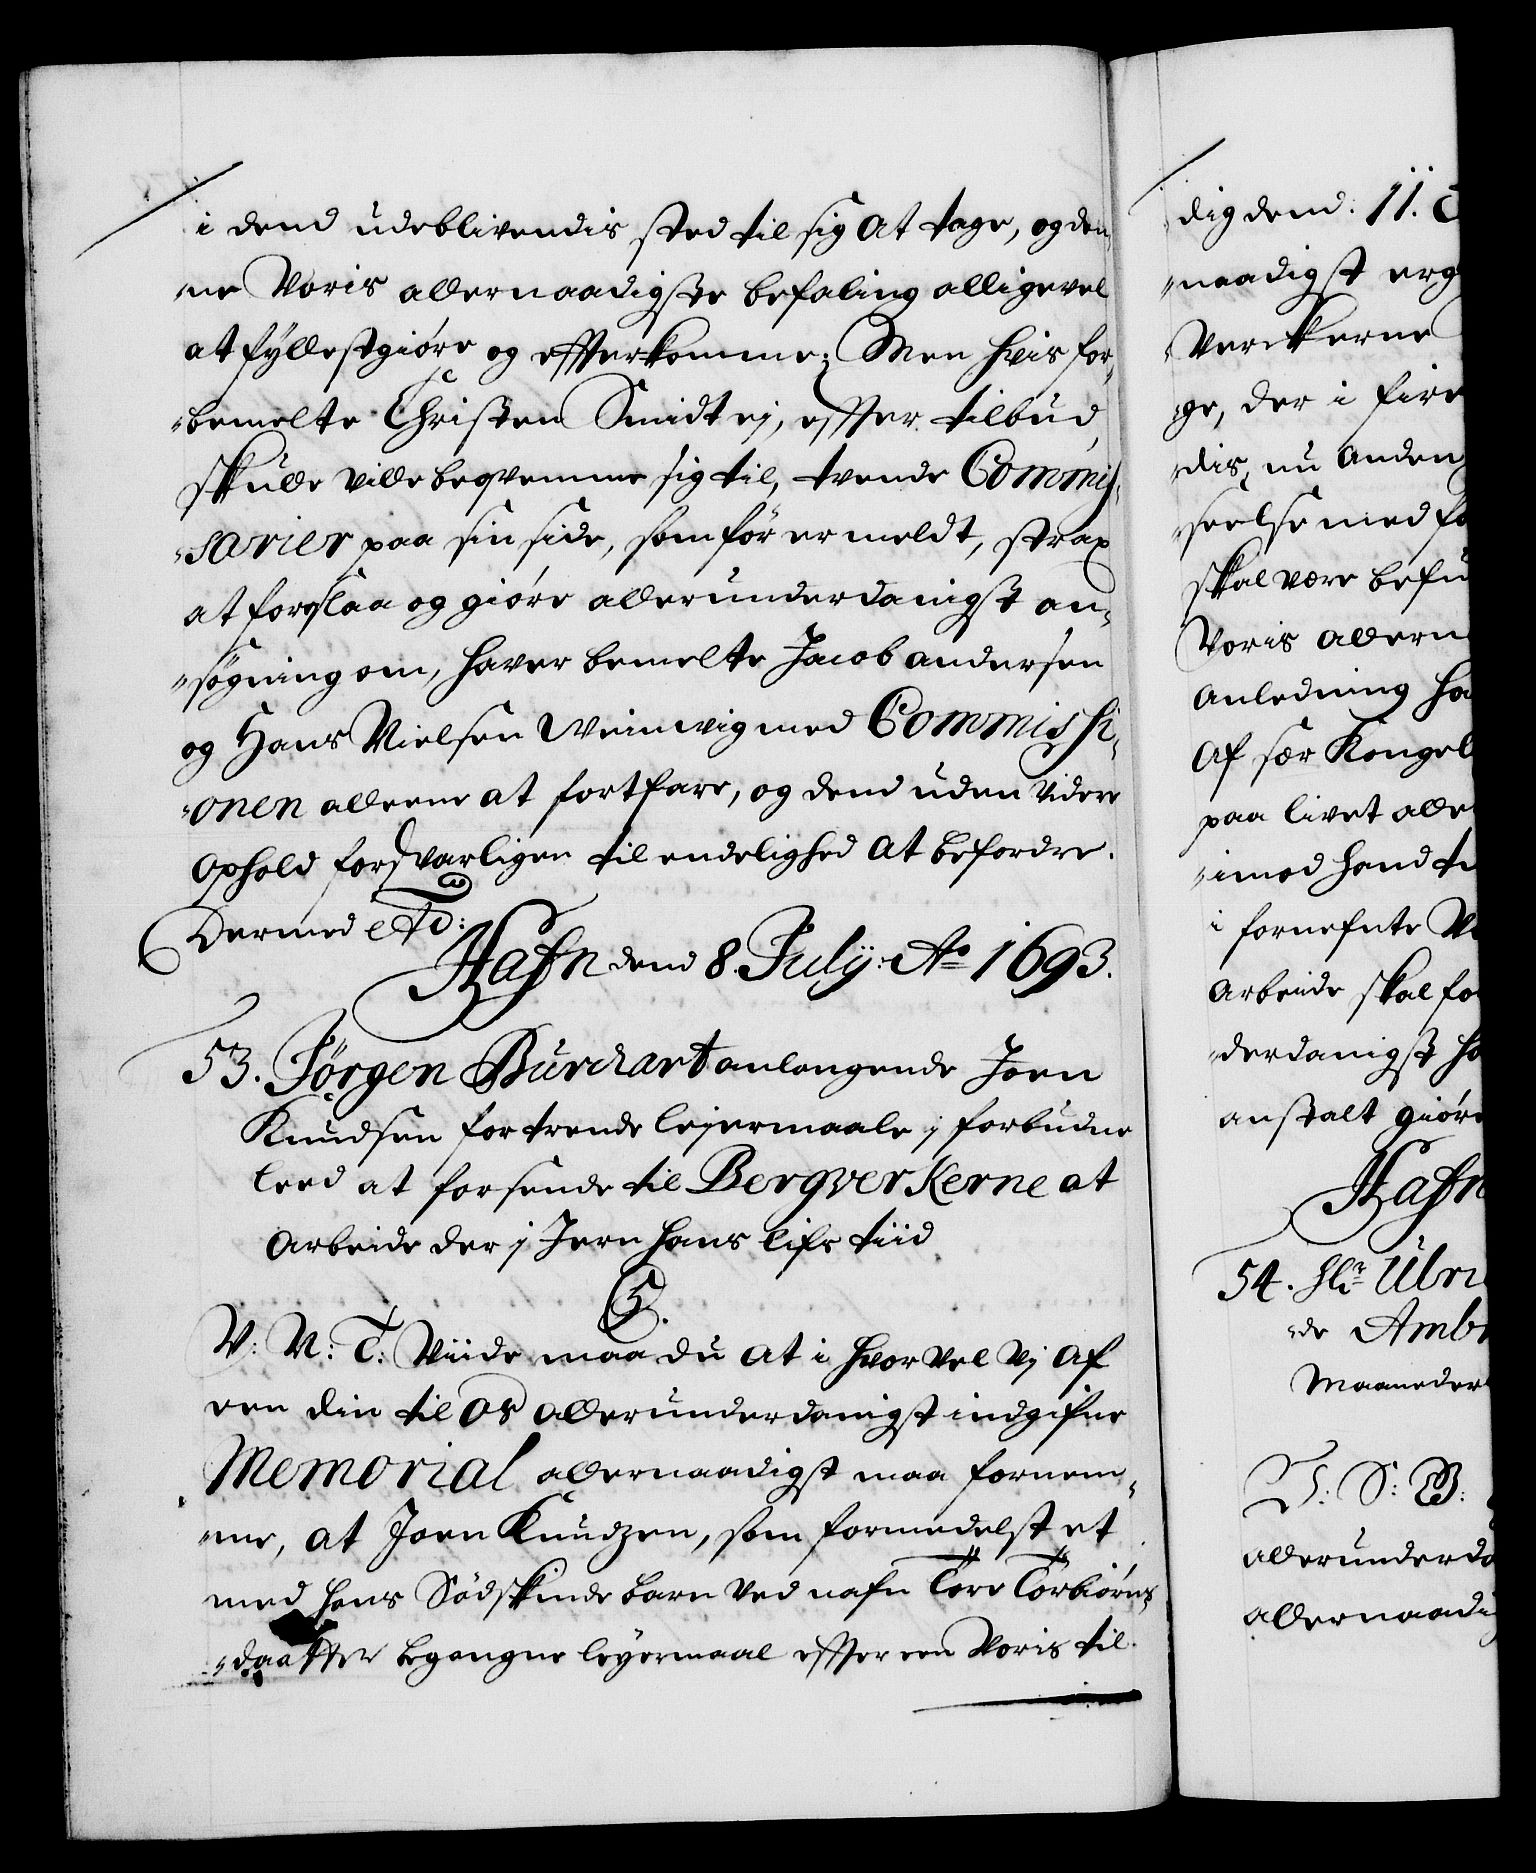 i dend udeblivendis sted til sig at tage, og den¬
„ne Voris allernaadigste befaling alligevel
at fyllestgiøre og effterkomme; Men hvis for¬
„bemelte Christen Smidt ej, effter tilbud,
skulle ville beqvemme sig til, tvende Commis¬
„sarier paa sin side, som før er meldt, strax
at forslaa og giøre allerunderdanigst an¬
„søgning om, haver bemelte Jacob andersen
og Hans Nielsen Weinwig med Commissi¬
„onen alleene at fortfare, og dend uden videre
Ophold forsvarligen til endelighed at befordre.
Dermed etc:
Hafn dend 8. Julij: Ao 1693.
53. Jørgen Burchart anlangende Joen
Knudsen for trende lejermaale j forbudne
leed at forsende til Bergverkerne at
Arbeide der j Jern hans lifs tiid
C5.
V: N: T: Viide maa du at i hvor vel vj af
een din til Os allerunderdanigst indgifne
Memorial allernaadigst maa fornem¬
„me, at Joen Knudzen, som formedelst et
med hans Sødskinde barn ved nafn Tore Torbiørns
„daatter begangne leyermaal effter een Voris til
dig dend: 11.
„naadigst
Verckerne
ge, der i fire
„dis, nu anden
„seelse med
skal være
Voris
Anledning
af sær
paa livet
„imod hand
i fornefnte
Arbeide skal
„derdanigst
anstalt giøre
Hafn
54. Hr
„de
Maaneder